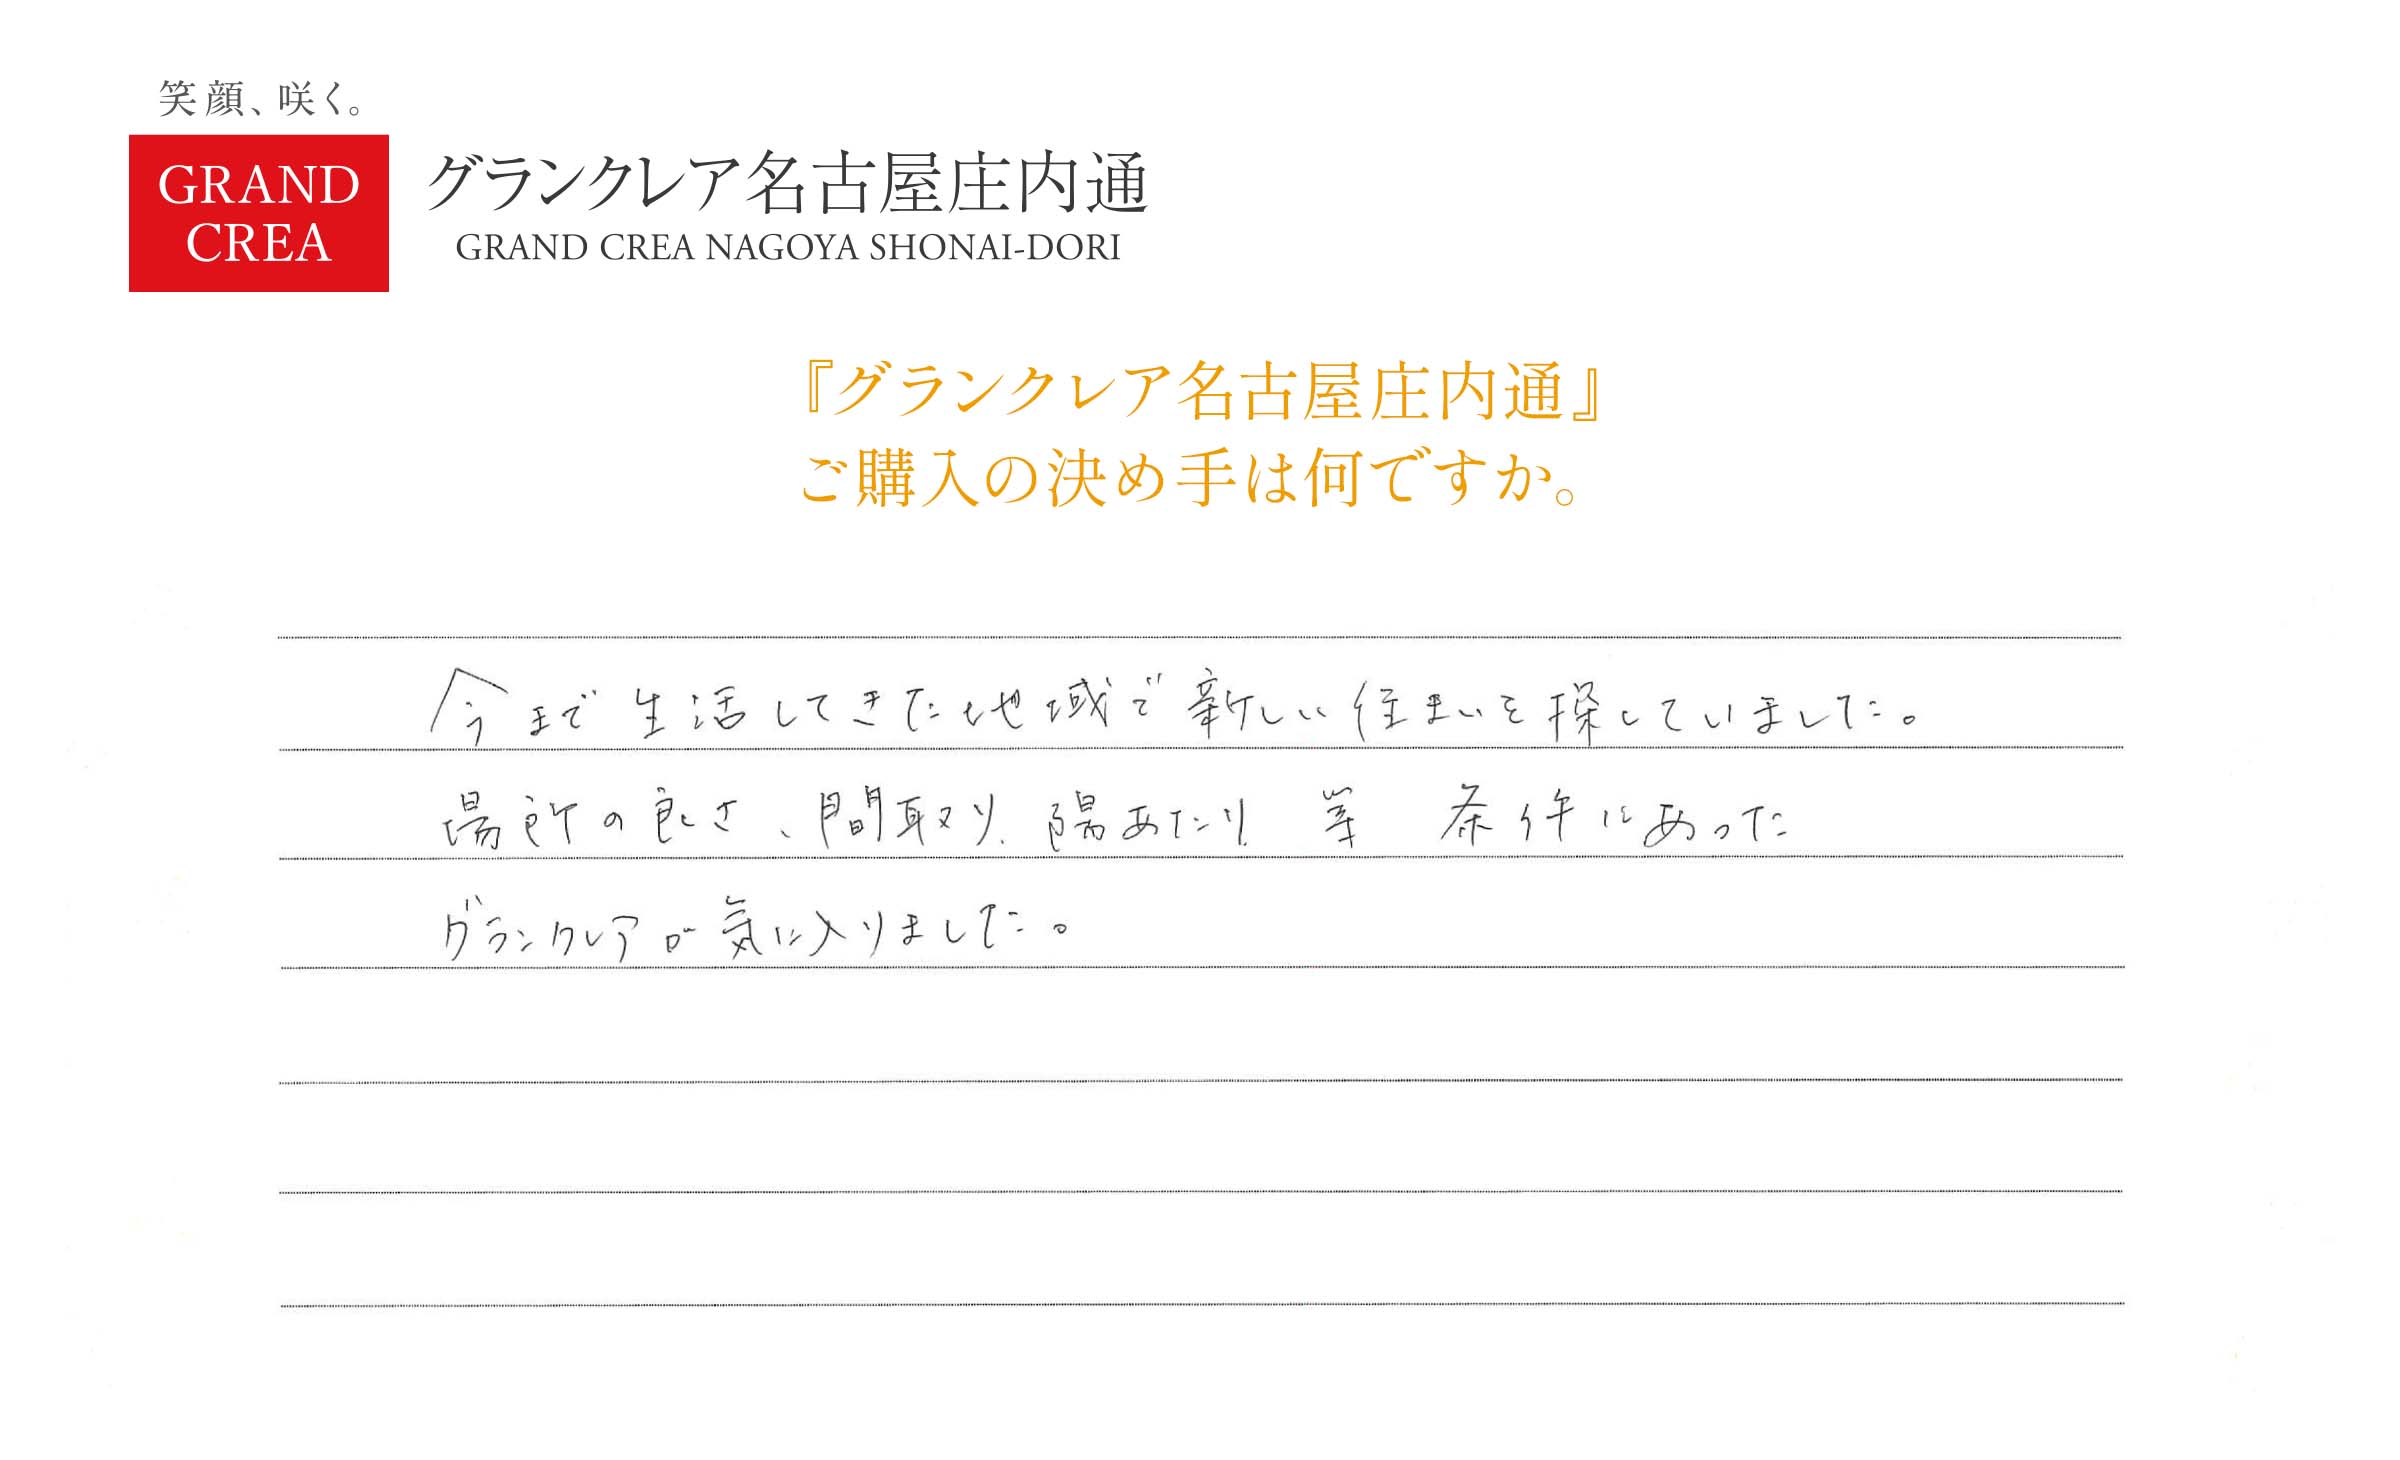 笑顔、咲く。
GRAND
CREA
グランクレア名古屋庄内通
GRAND CREA NAGOYA SHONAI-DORI
『グランクレア名古屋庄内通』
ご購入の決め手は何ですか。
今まで生活してきた地域で新しい住まいを探していました。
場所の良さ、間取り、陽あたり 等 条件にあった
グランクレアが気に入りました。